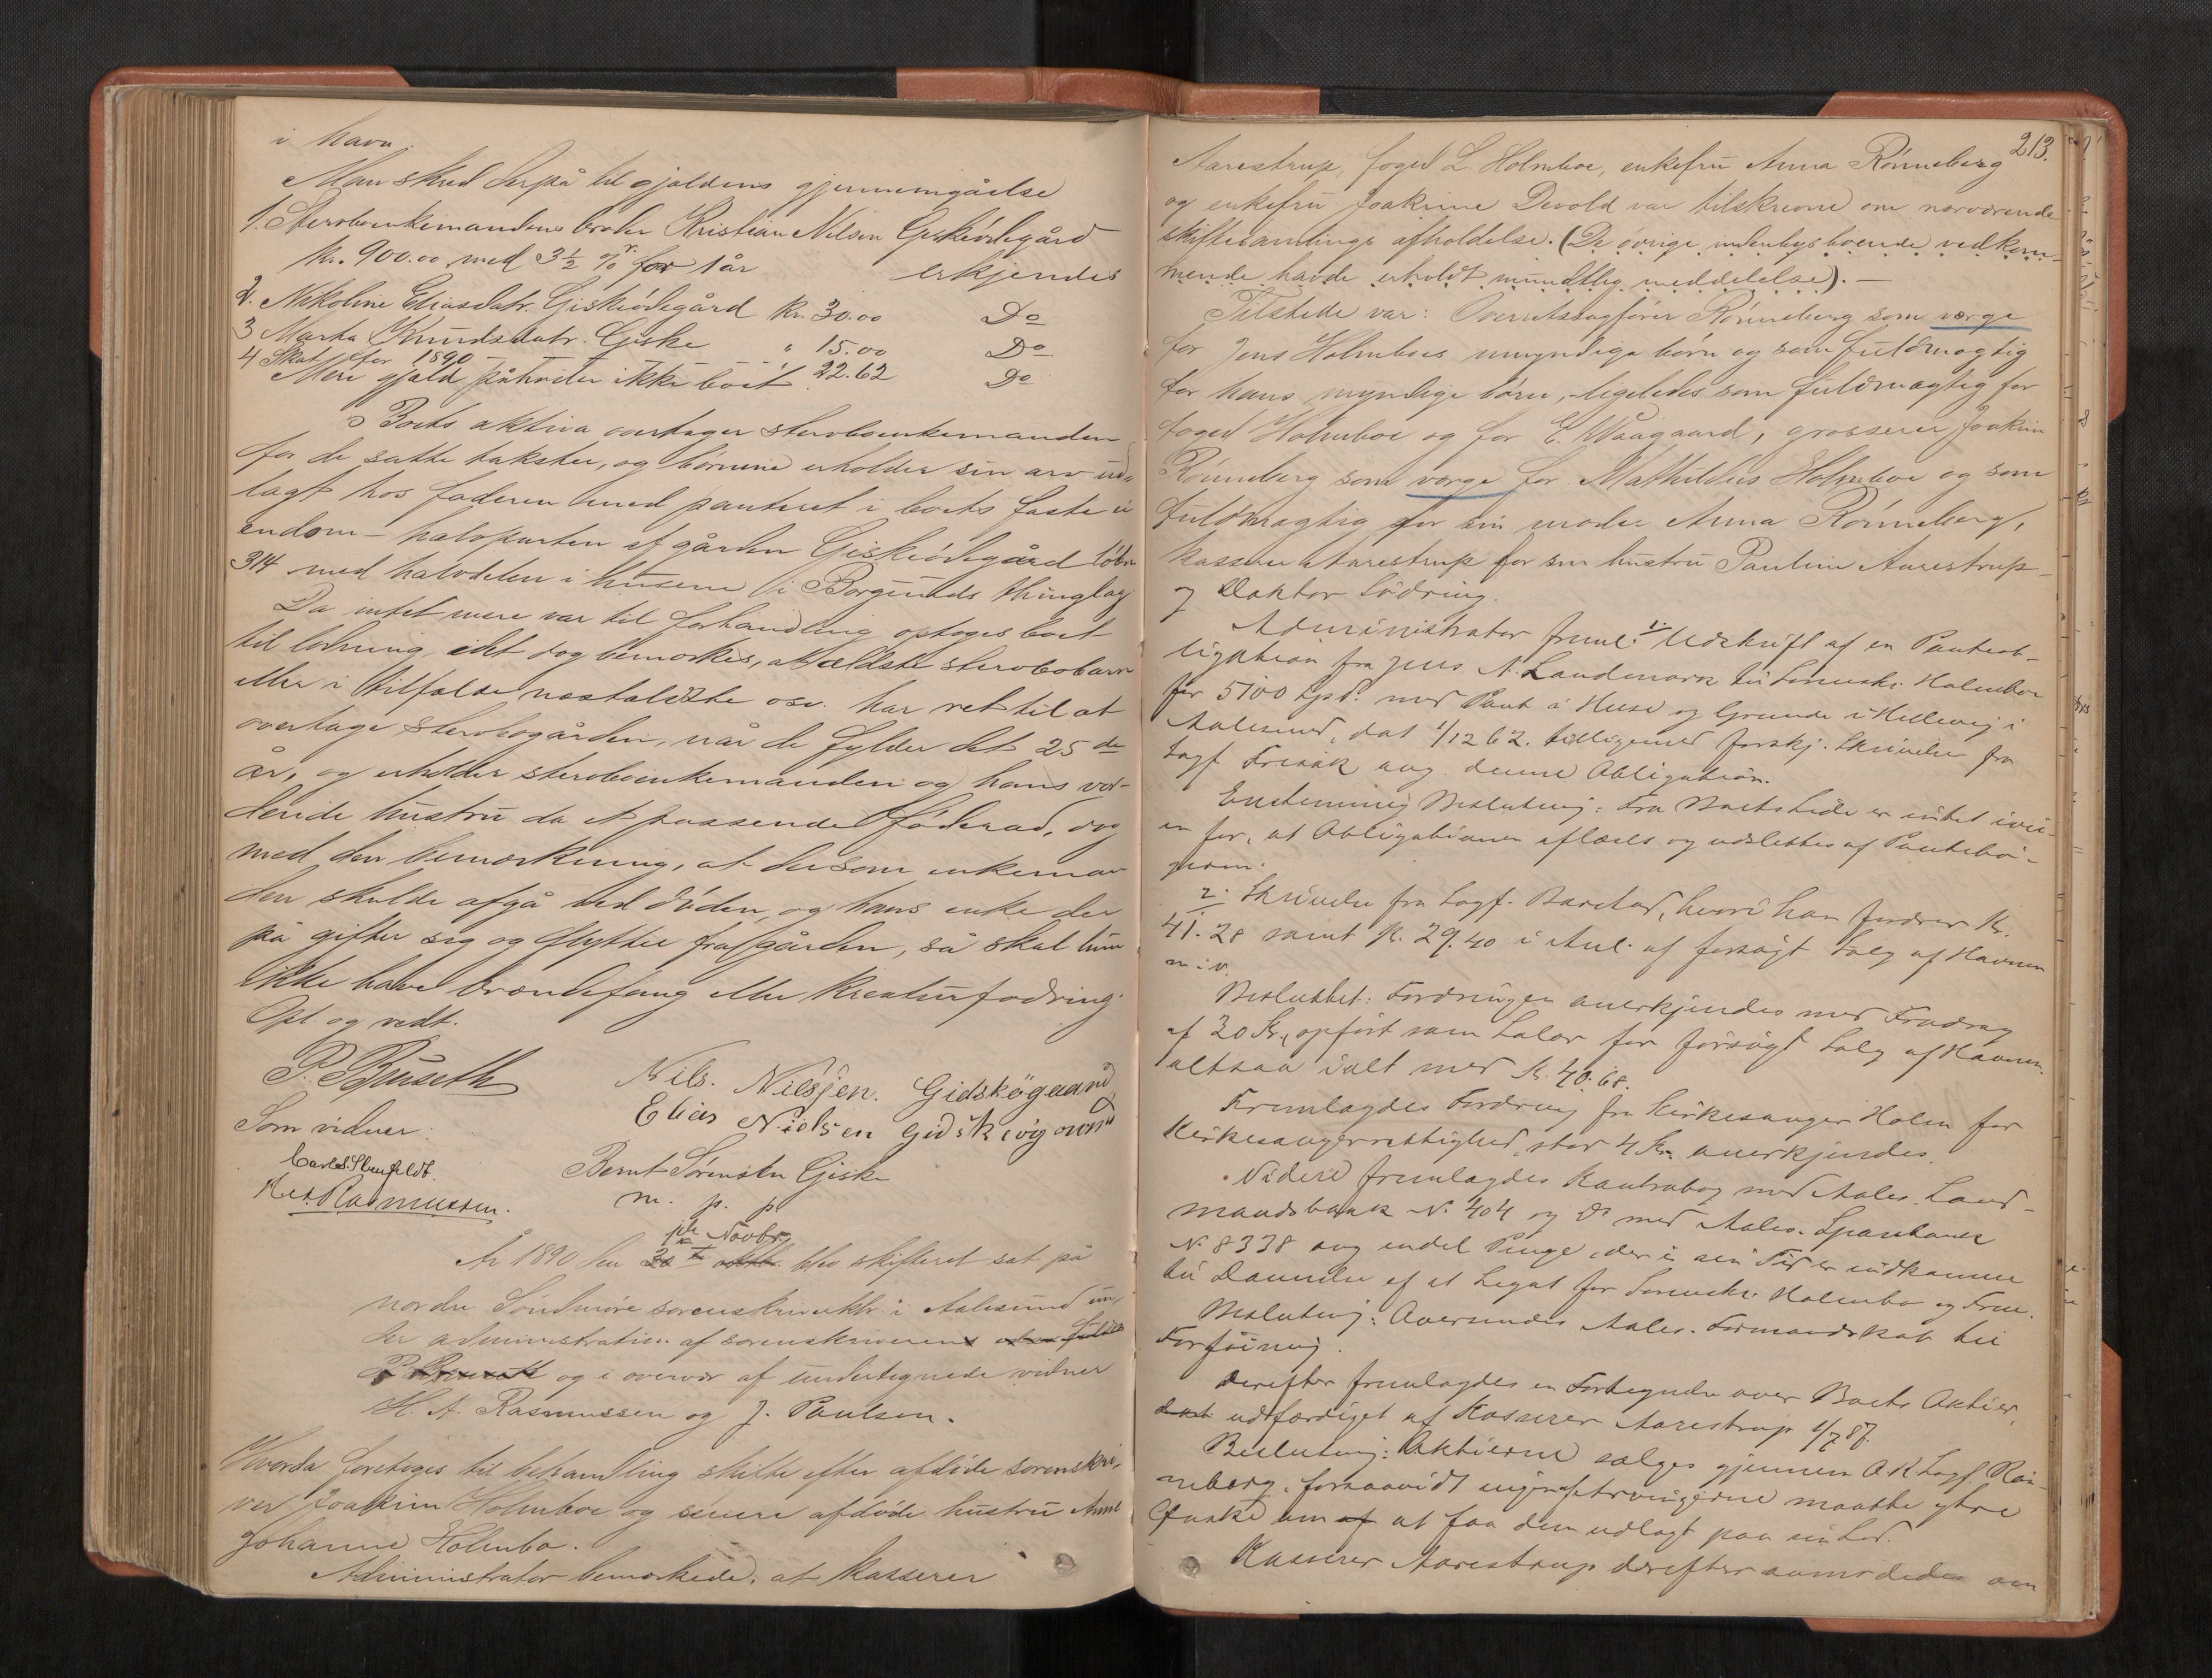 i havn.
Man skred derpå til gjældens gjennemgåelse
1. Sterboenkemandens broder Kristian Nilsen Giskeødegård
Kr. 900.00 med 3½ % r. for 1 år erkjendes
2. Nikoline Eliasdatr. Giskeødegård Kr. 30.00 Do
3 Marta Knudsdatr. Giske " 15.00 Do
4 Skat for 1890 - " 22.62 Do
Mere gjæld påhviler ikke boet
Boets aktiva overtager sterboenkemanden
for de satte takster, og børnene erholder sin arv ud-
lagt hos faderen med panteret i boets faste ei
endom - halvparten af gården Giskeødegård løbn
314 med halvdelen i husene i Borgunds thinglag
Da intet mere var til forhandling optoges boet
til lodning, idet dog bemærkes, at ældste sterbobarn
eller i tilfælde næstældste osv. har ret til at
overtage sterbogården, når de fylder det 25de
år, og erholder sterboenkemanden og hans vor-
dende hustru da et passende føderåd, dog
med den bemærkning, at dersom enkeman
den skulde afgå ved døden, og hans enke der
på gifter sig og flytter fra gården, så skal hun
ikke have brændefang eller kreaturfodring.
Opl. og vedt.
P. Buseth
Nils. Nilsjen. Gidskögaard
Elias Nielsen Gidskiögaard
Som vidner:
Carl S. Stenfeldt.
Bernt Sørensen Giske
H. A. Rasmussen.
m. p. p.
1ste Novbr.
År 1890 den 30te oktbr. blev skifteret sat på
nordre Söndmöre sorenskriverktr. i Aalesund un-
der administration af sorenskriverens
P. Buseth og i overvær af undertegnede vidner
H. A. Rasmussen og J. Paulsen.
Hvorda foretoges til behandling skifte efter afdöde sorenskri-
ver Joakim Holmboe og senere afdöde hustru Anne
Johanne Holmbo.
Administrator bemærkede, at kasserer
213.
Aarestrup, foged L Holmboe, enkefru Anna Rönneberg
og enkefru Joakime Devold var tilskrevne om nærværende
skiftesamlings afholdelse. (De övrige indenbys boende vedkom-
mende havde erholdt mundtlig meddelelse). -
Tilstede var: Overretssagförer Rönneberg som værge
for Jens Holmboes umyndige börn og som fuldmægtig
for hans myndige börn, - ligeledes som fuldmægtig for
foged Holmboe og for E. Waagaard, grosserer Joakim
Rönneberg som værge for Mathildus Holmboe og som
fuldmægtig for sin moder Anna Rönneberg,
kasserer Aarestrup for sin hustru Pauline Aarestrup
og Doktor Lödring.
Administrator freml. 1. Udskrift af en Panteob-
ligation fra Jens A. Landmark til Sorenskr. Holmboe
for 5100 Spd. med Pant i Huse og Grunde i Hellevig i
Aalesund, dat 1/12 62. tilligemed forskj. Skrivelser fra
Sagf Frisak ang. denne Obligation.
Enstemmig Beslutning: Fra Boets Side er intet ivei-
en for, at Obligationen aflæses og udslettes af Pantebö-
gerne.
2. Skrivelse fra Sagf. Barstad, hvori han fordrer Kr.
41.28 samt Kr. 29.40 i Anl. af forsögt Salg af Havnen
m. v.
Besluttet: Fordringen anerkjendes med Fradrag
af 30 Kr., opfört som Salær for forsögt Salg af Havnen.
altsaa ialt med Kr. 40.68.
Fremlagdes Fordring fra Kirkesanger Holm for
Kirkesangerrettighed, stor 4 Kr. anerkjendes.
Videre fremlagdes Kontrabog med Aales. Land-
mandsbank N. 404 og Do med Aales. Sparebank
N. 8338 ang endel Penge, der i sin Tid er indkomne
til Dannelse af et Legat for Sorenskr. Holmbo og Frue.
Beslutning: Oversendes Aales. Formandskab til
Forföining.
Derefter fremlagdes en Fortegnelse over Boets Aktier,
dat udfærdiget af Kasserer Aarestrup 1/7 87.
Beslutning: Aktierne sælges gjennem O R Sagf. Rön-
neberg, forsaavidt ingen af Arvingerne maatte ytre
Önske om af at faa dem udlagt paa sin Lod.
Kasserer Aarestrup derefter anmodedes om